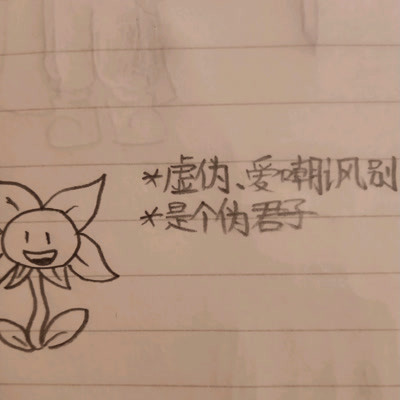 *虚伪、爱嘲讽别
*是个伪君子